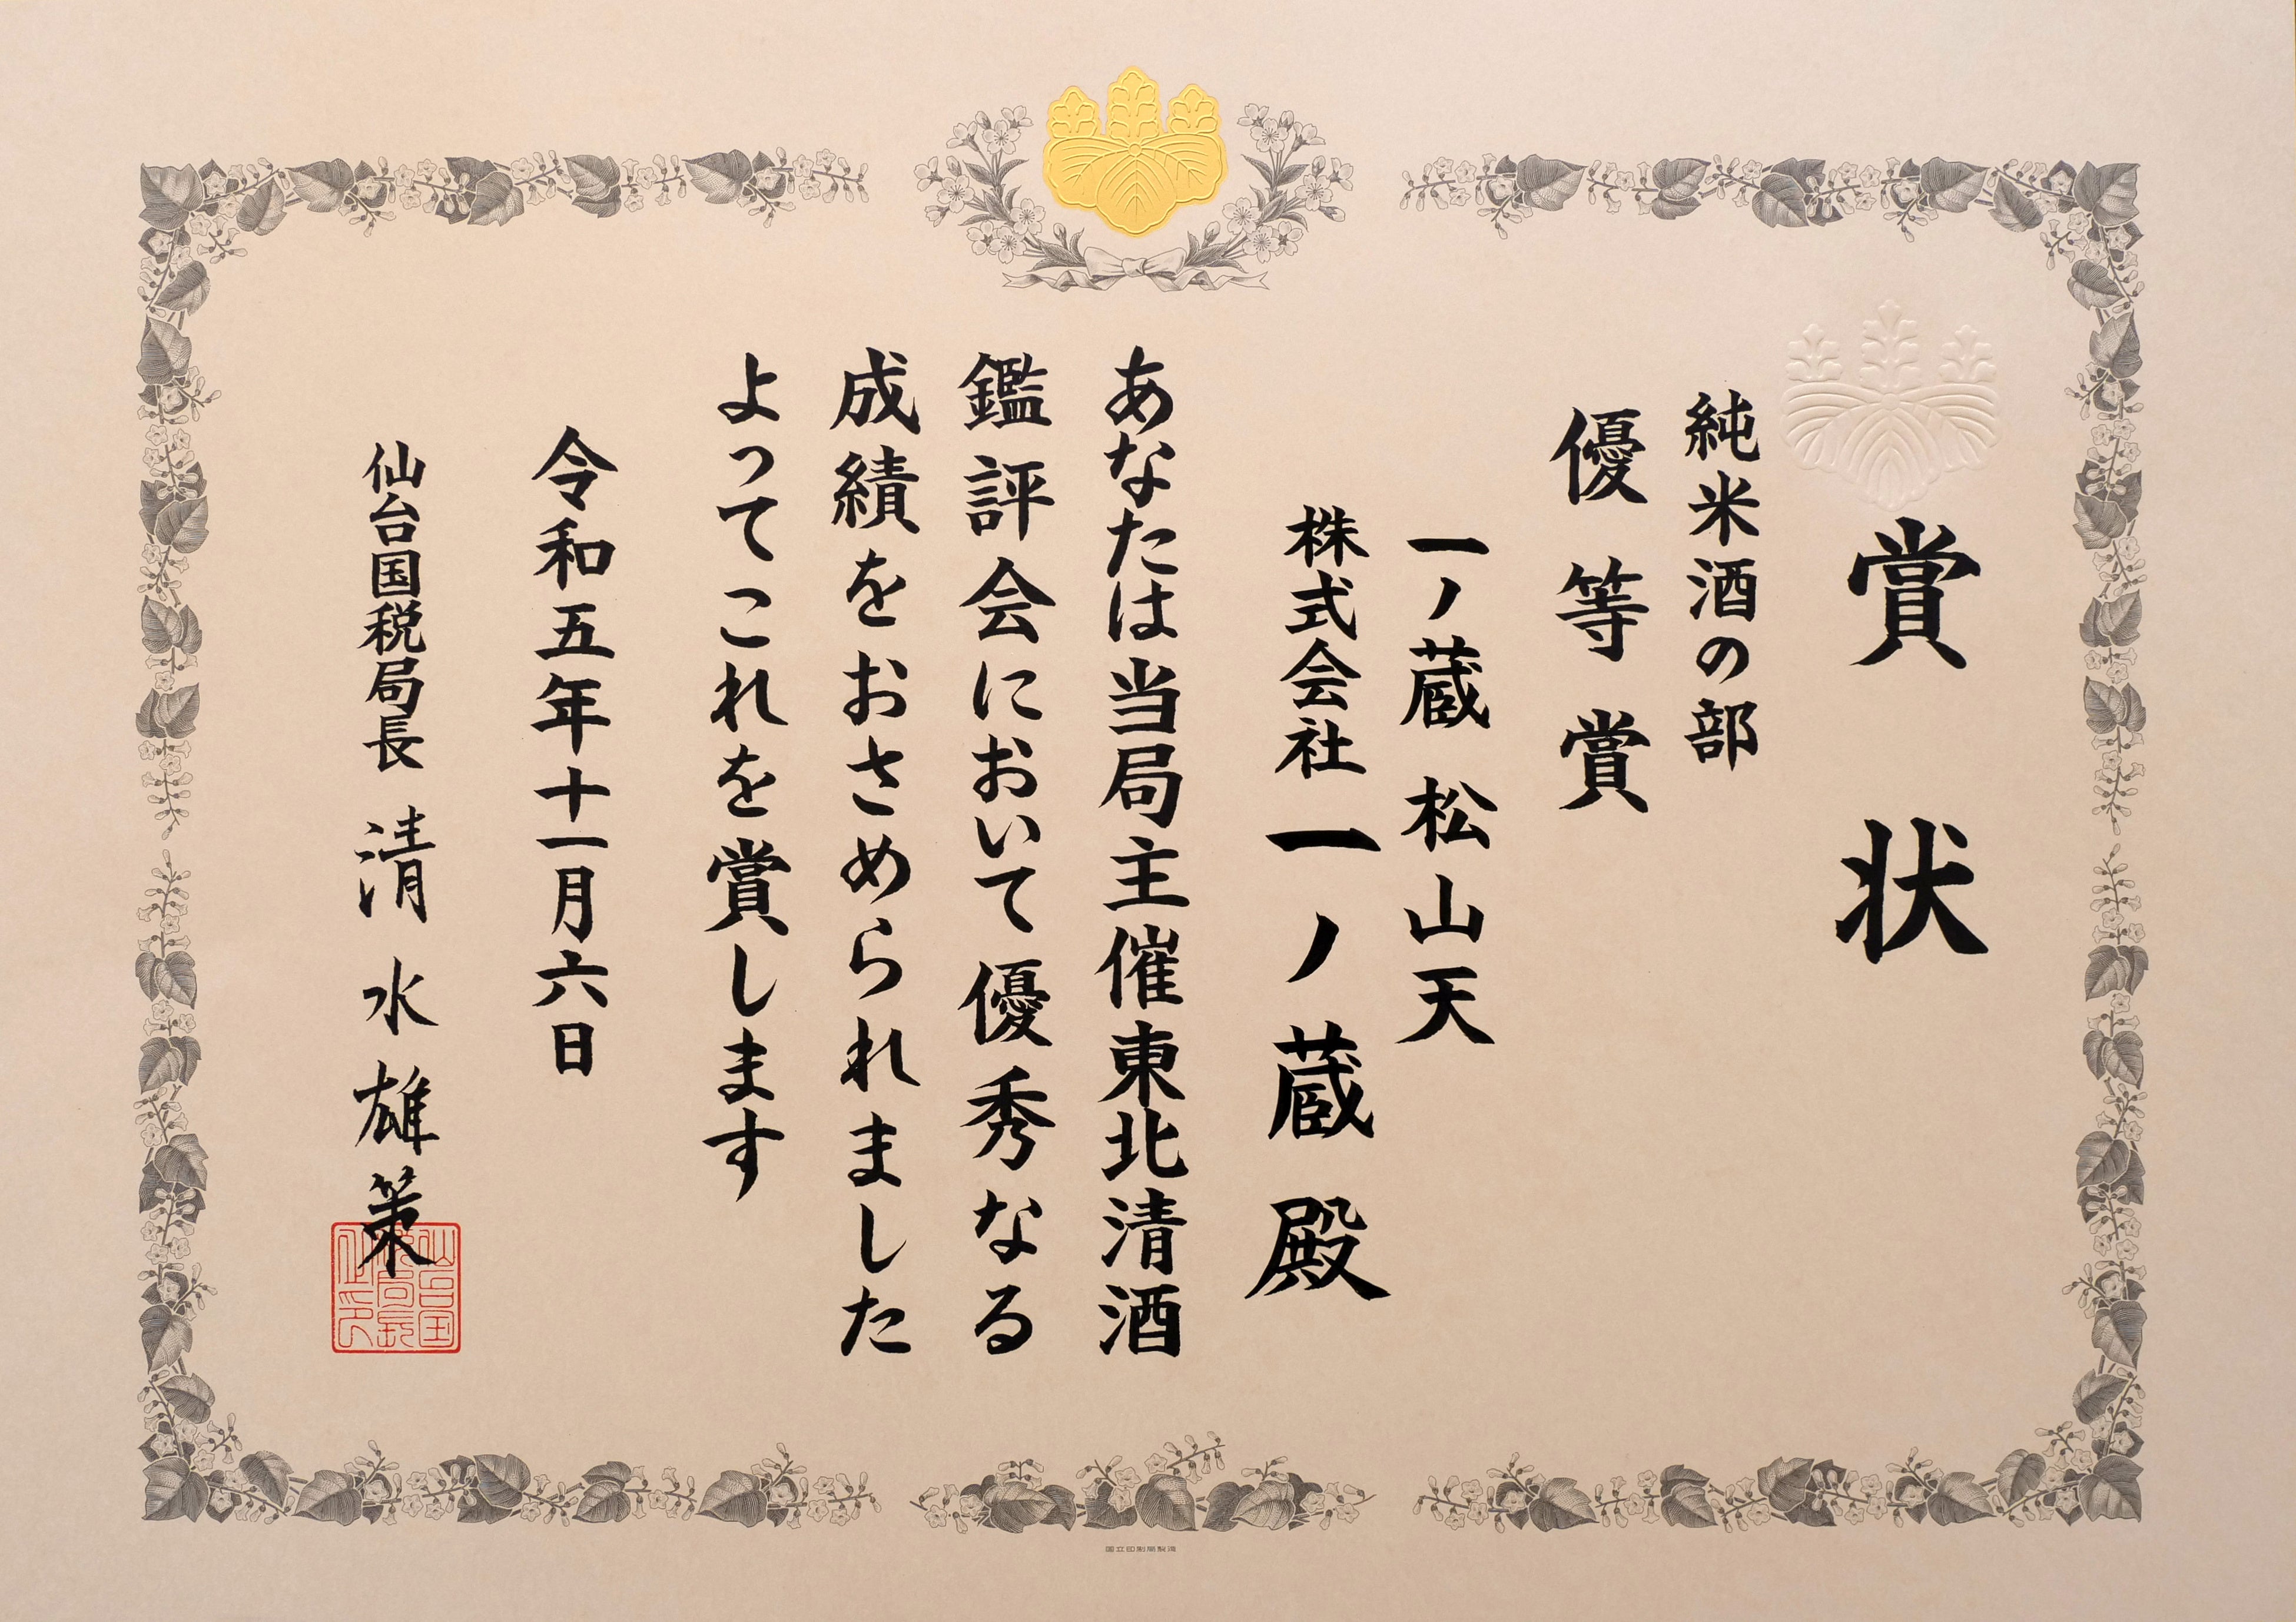 賞状
純米酒の部
優等賞
一ノ蔵 松山天
株式会社 一ノ蔵 殿
あなたは当局主催東北清酒
鑑評会において優秀なる
成績をおさめられました
よってこれを賞します
令和五年十一月六日
仙台国税局長 清水雄策
国立印刷局製造